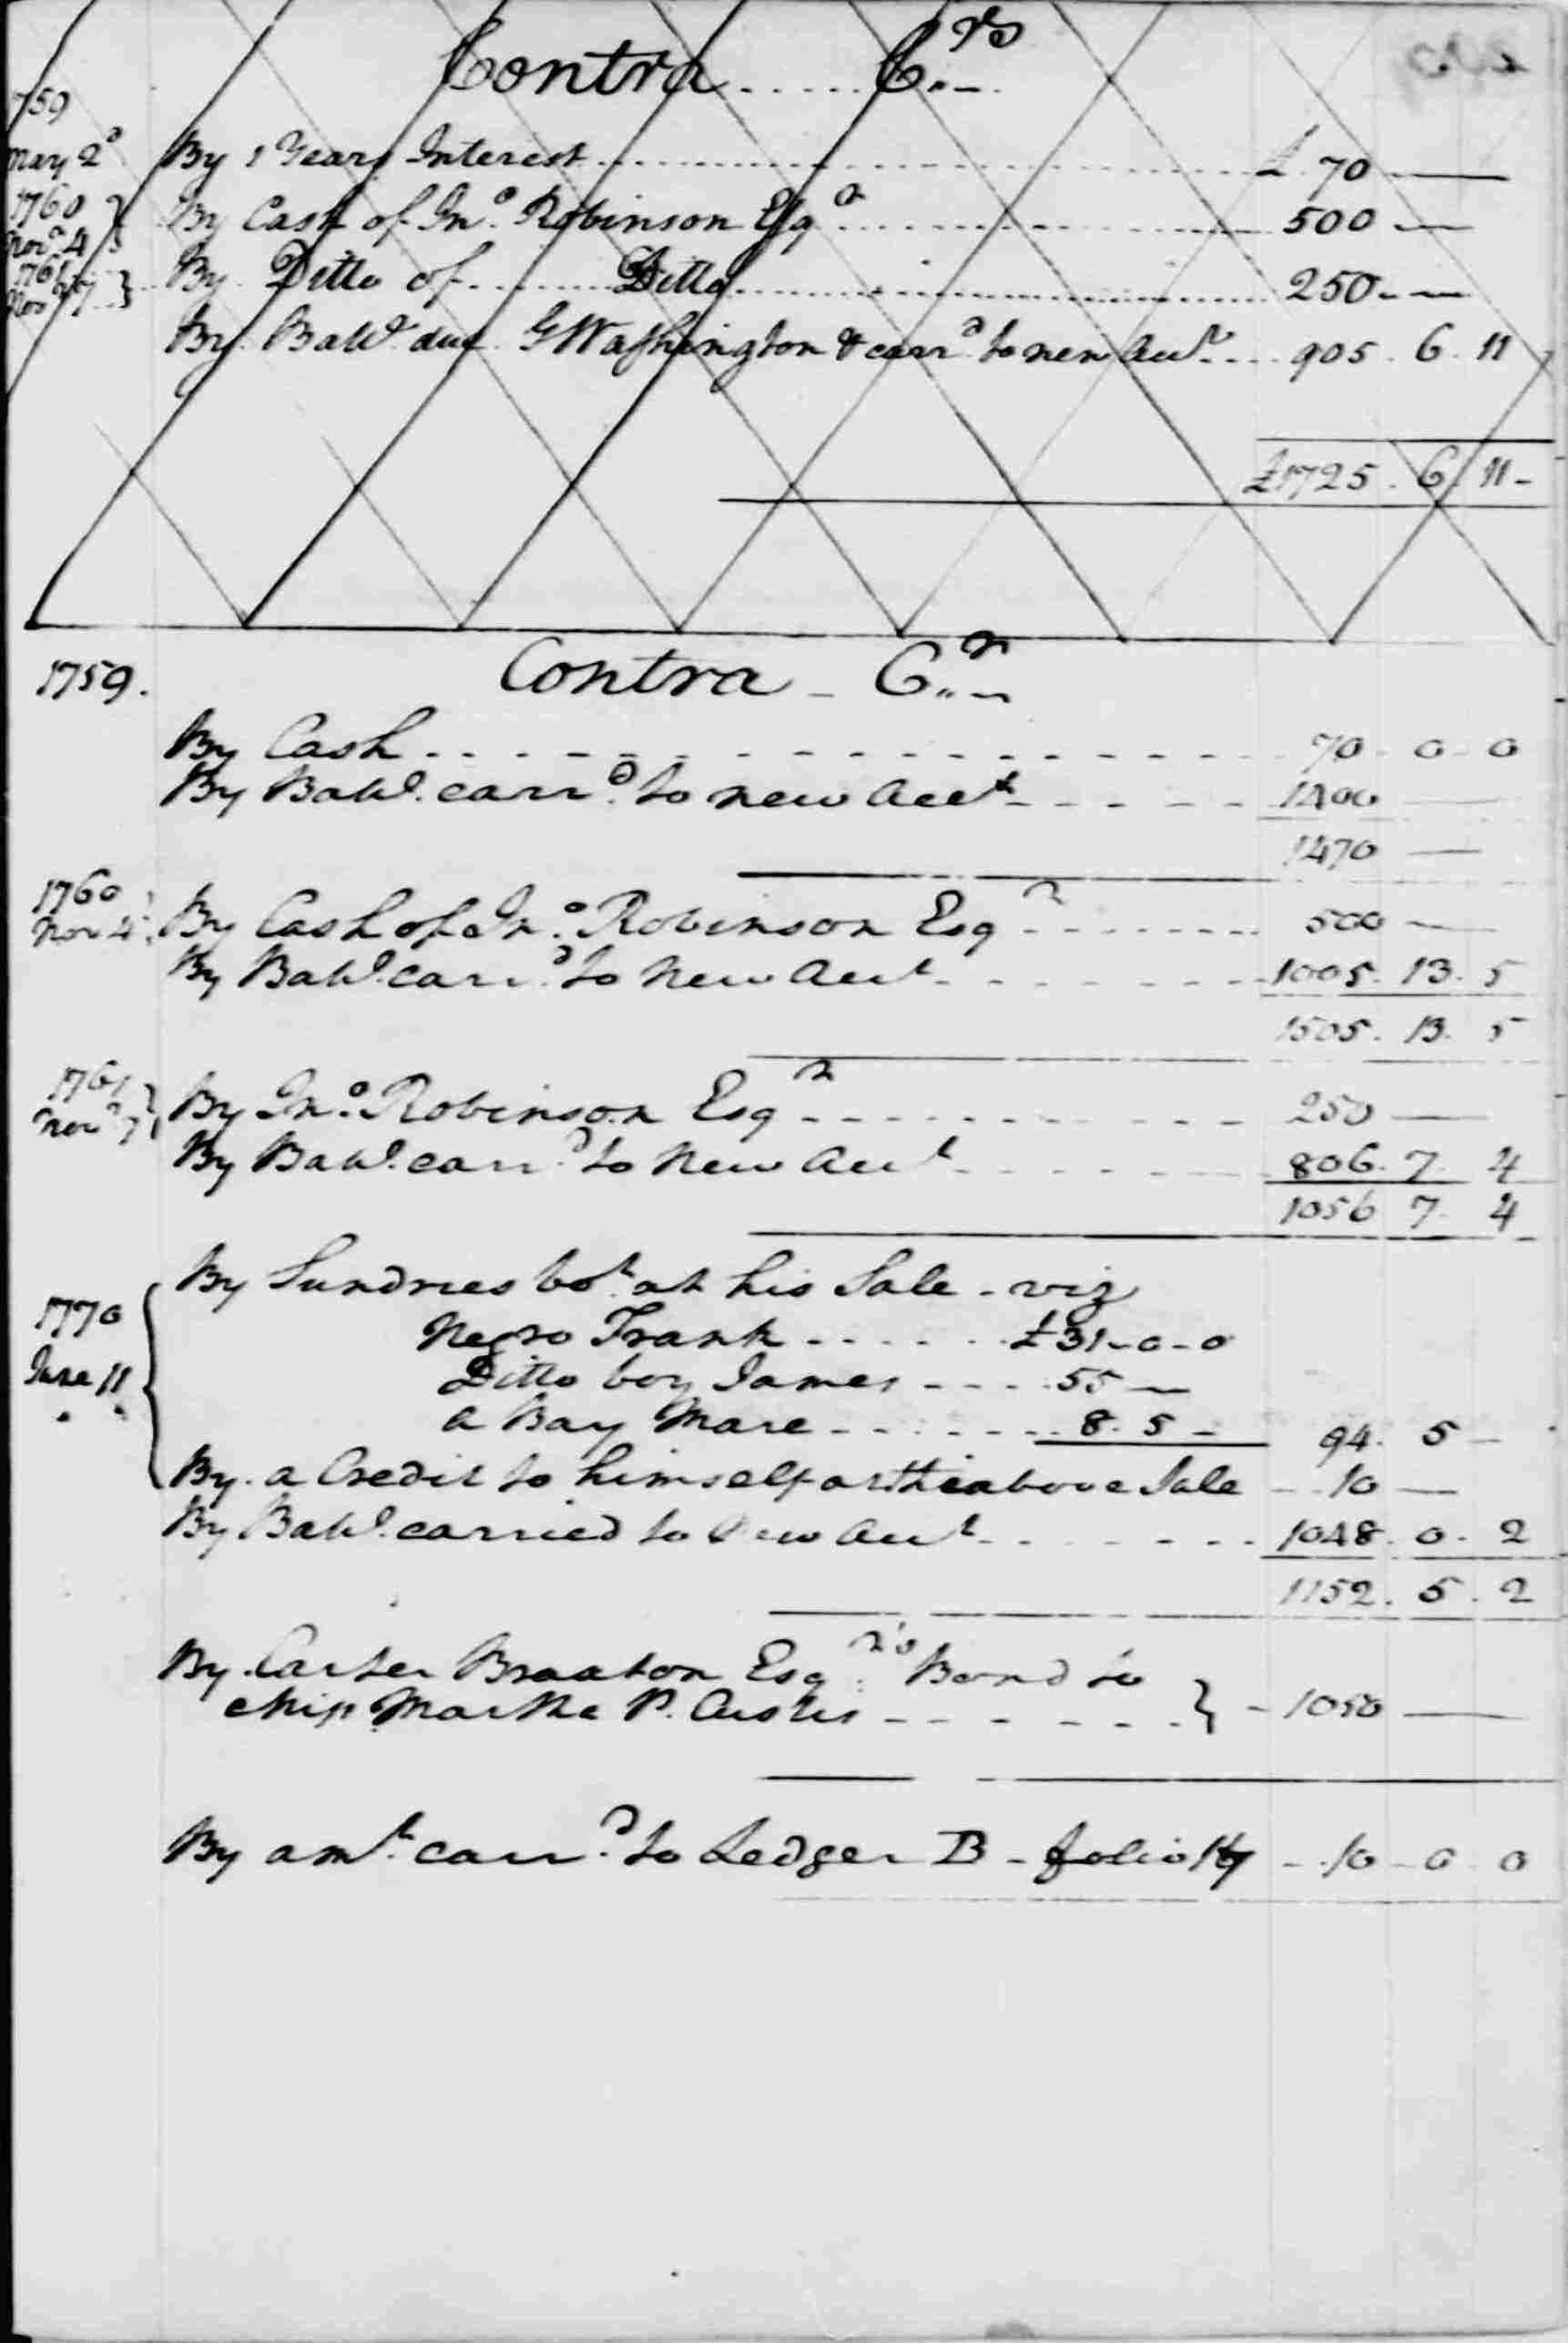 Contra ..... Crs
1759
May 2d By 1 Years Interest ..... £ 70 —
1760 Novr 4 } By Cash of Jno. Robinson Esqr ..... 500 —
1761 Novr 7 } By Ditto of ..... Ditto ..... 250 - —
By Balle. due GWashington & carrd. to new Acct. ... 905 . 6 . 11
£1725 . 6 . 11 -
1759. Contra - Cr.
By Cash - - - - 70 - 0 - 0
By Balle. carrd. to new Acct - - - - 1400 —
1470 —
1760 Nov 4 By Cash of Jno. Robinson Esqr - - - - 500 —
By Balle. carrd. to New Acct - - - - 1005. 13. 5
1505. 13. 5
1761 Novr 7 } By Jno. Robinson Esqr - - - - 250 —
By Balle. carrd. to New Acct - - - - 806. 7. 4
1056 7. 4
By Sundries bot. at his Sale - viz
1770 Negro Frank - - - - £31 - 0 - 0
June 11 Ditto boy James - - - - 55 —
a Bay Mare - - - - 8. 5 - 94. 5 -
By a Credit to himself at the above Sale - - 10 —
By Balle. carried to New Acct - - - - 1048. 0. 2
1152. 5. 2
By Carter Braxton Esqr's Bond to
Miss Martha P. Custis - - - - } - 1050 —
By amt. carrd. to Ledger B - folio - - 10 - 0 - 0